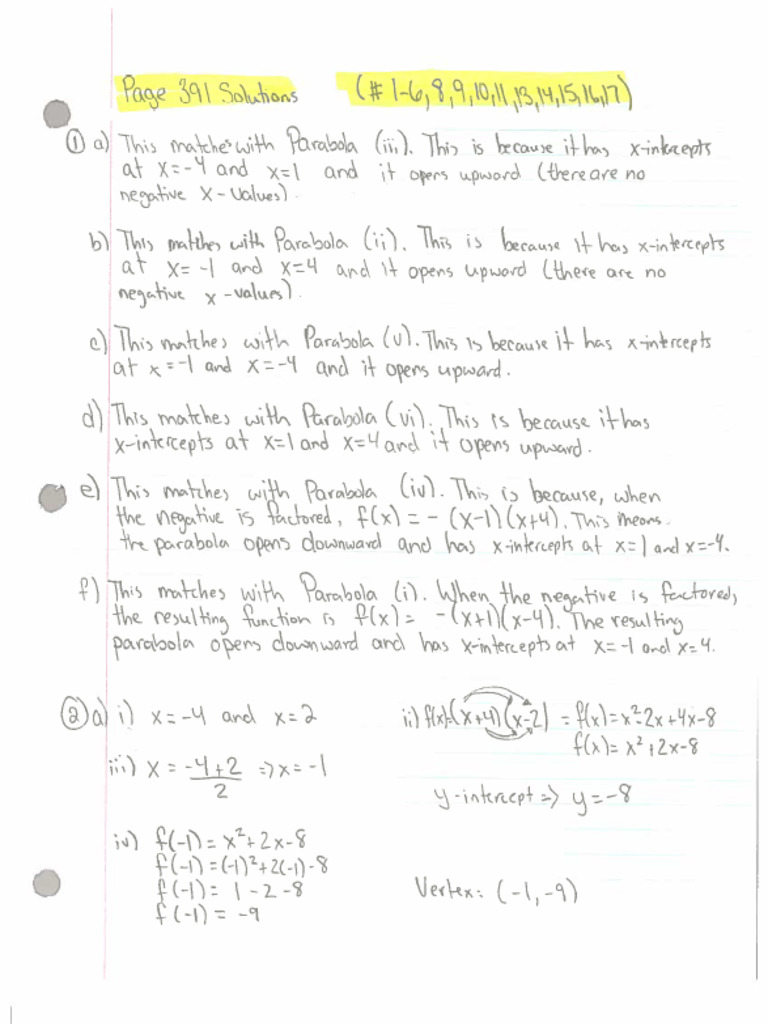 Page 391 Solutions (# 1-6, 8, 9, 10, 11, 13, 14, 15, 16, 17)
① a) This matches with Parabola (iii). This is because it has x-intercepts
at x=-4 and x=1 and it opens upward (there are no
negative x-values).
b) This matches with Parabola (ii). This is because it has x-intercepts
at x=-1 and x=4 and it opens upward (there are no
negative x-values).
c) This matches with Parabola (v). This is because it has x-intercepts
at x=-1 and x=-4 and it opens upward.
d) This matches with Parabola (vi). This is because it has
x-intercepts at x=1 and x=4 and it opens upward.
e) This matches with Parabola (iv). This is because, when
the negative is factored, f(x) = -(x-1)(x+4). This means
the parabola opens downward and has x-intercepts at x=1 and x=-4.
f) This matches with Parabola (i). When the negative is factored,
the resulting function is f(x) = -(x+1)(x-4). The resulting
parabola opens downward and has x-intercepts at x=-1 and x=4.
② a) i) x=-4 and x=2
ii) f(x)=(x+4)(x-2) = f(x)=x²-2x+4x-8
f(x)=x²+2x-8
y-intercept => y=-8
iii) x = -4+2 => x=-1
2
iv) f(-1) = x²+2x-8
f(-1) = (-1)²+2(-1)-8
f(-1) = 1-2-8
f(-1) = -9
Vertex: (-1,-9)